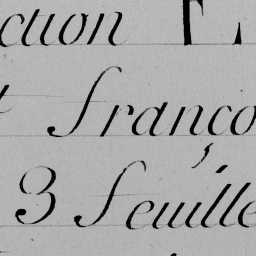 ction
franço
3 feuille